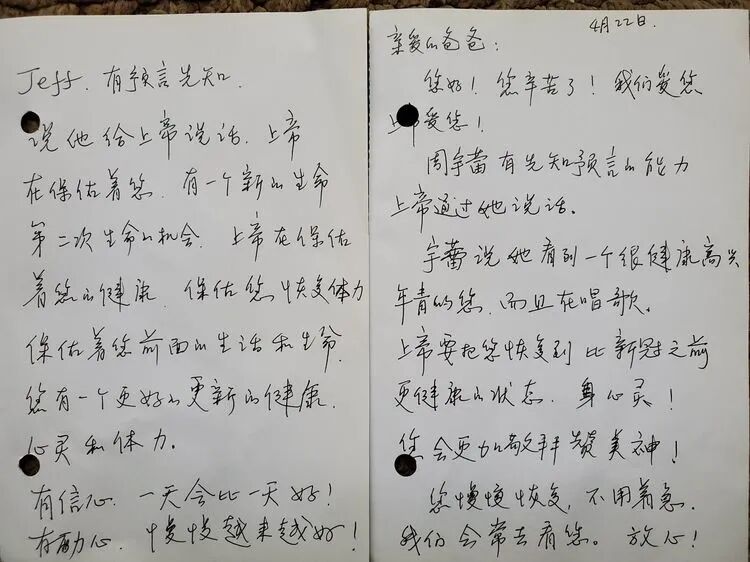 4月22日.
亲爱的爸爸：
您好！您辛苦了！我们爱您
上帝爱您！
周宇蕾有先知预言的能力
上帝通过她说话。
宇蕾说她看到一个很健康高兴
年青的您，而且在唱歌。
上帝要把您恢复到比新冠之前
更健康的状态．身心灵！
您会更加敬拜赞美神！
您慢慢恢复，不用着急．
我们会常去看您。放心！
Jeff．有预言先知．
说他给上帝说话．上帝
在保佑着您．有一个新的生命
第二次生命的机会．上帝在保佑
着您的健康．保佑您恢复体力
保佑着您前面的生活和生命．
您有一个更好的更新的健康．
心灵和体力．
有信心．一天会比一天好！
有励心．慢慢越来越好！